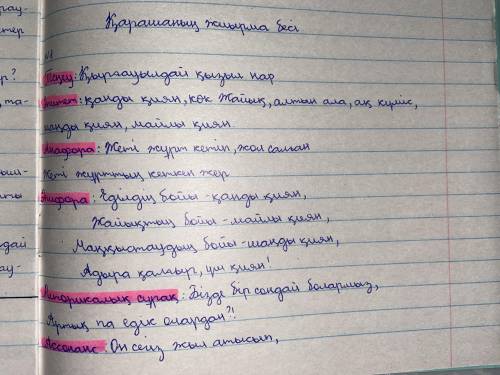 Қарашаның жиырма бесі
№1
Теңеу: Қырғауылдай қызыл нар
Эпитет: қанды қиян, көк Жайық, алтын ала, ақ күміс,
шаңды қиян, майлы қиян
Анафора: Жеті жұрт кетіп, жол салған
Жеті жұрттың кеткен жер
Эпифора: Еділдің бойы - қанды қиян,
Жайықтың бойы - майлы қиян,
Маңқыстаудың бойы - шаңды қиян,
Адыра қалғыр, үш қиян!
Риторикалық сұрақ: Бізде бір сондай болармыз,
Артық па едік олардан?!
Ассонанс: Он сегіз жыл атысып,